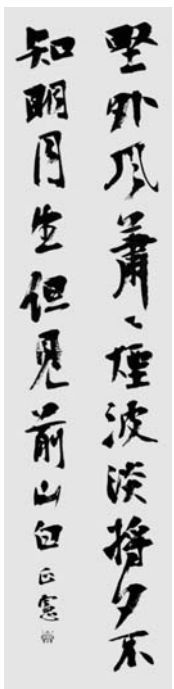 墅外風蕭々煙波淡将夕不
知明月生但見前山白 正憲